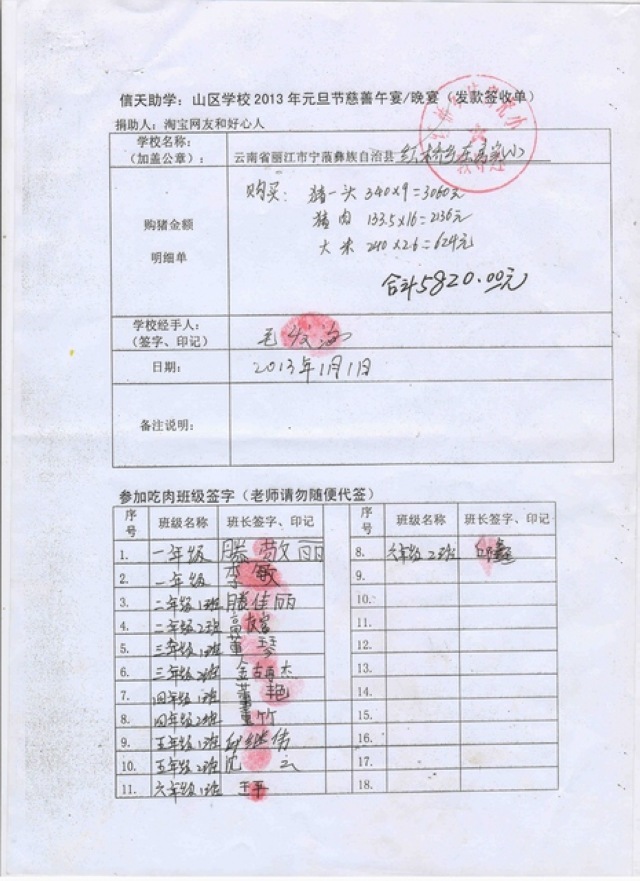 信天助学：山区学校2013年元旦节慈善午宴/晚宴（发款签收单）
捐助人：淘宝网友和好心人
学校名称：
（加盖公章）：
云南省丽江市宁蒗彝族自治县 红桥乡
购猪金额
明细单
购买：猪一头 340×9=3060元
猪肉 133.5×16=2136元
大米 240×2.6=624元
合计5820.00元
学校经手人：
（签字、印记）
日期：
2013年1月1日
备注说明：
参加吃肉班级签字（老师请勿随便代签）
序号 班级名称 班长签字、印记 序号 班级名称 班长签字、印记
1. 一年级 滕敬丽 8. 六年级2班
2. 一年级 李敏 9.
3. 二年级1班 滕佳丽 10.
4. 二年级2班 11.
5. 三年级1班 董琴 12.
6. 三年级2班 13.
7 四年级1班 董艳 14.
8. 四年级2班 董竹 15.
9. 五年级1班 邱继伟 16.
10. 五年级2班 云 17.
11. 六年级1班 王平 18.